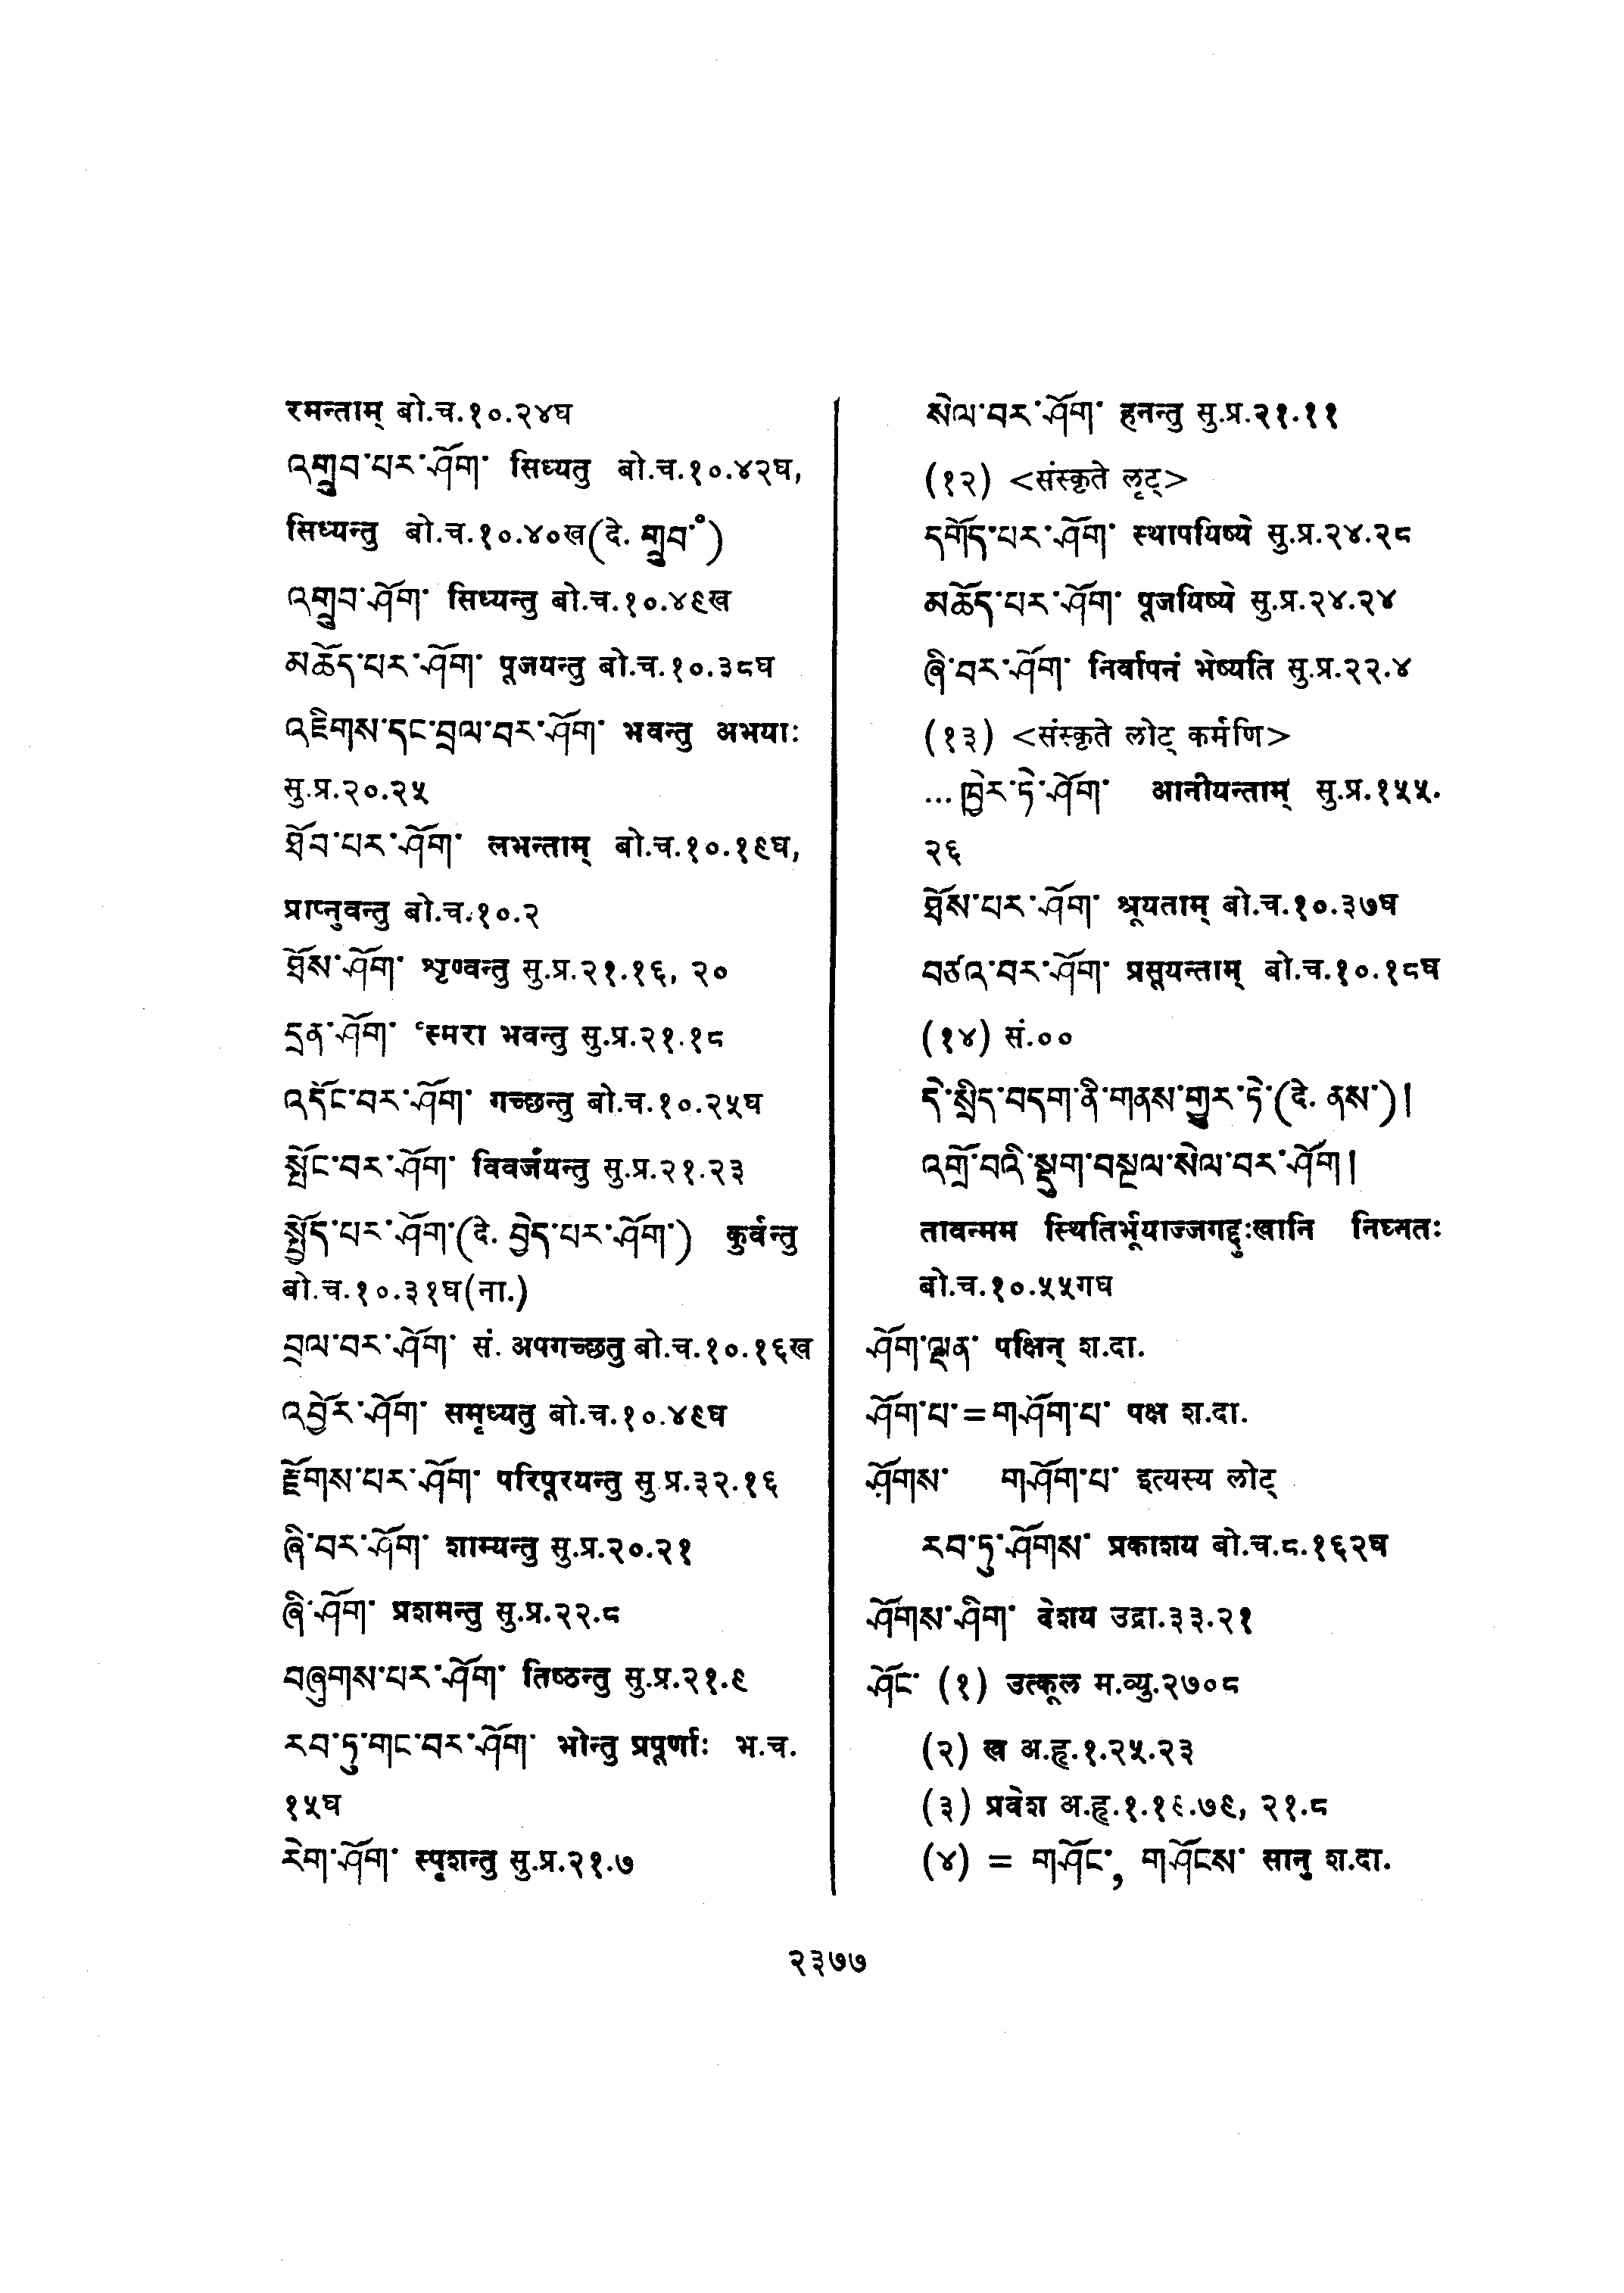 रमन्ताम् बो.च.१०.२४घ
འགྲུབ་པར་ཤོག་ सिध्यतु बो.च.१०.४२घ,
सिध्यन्तु बो.च.१०.४०ख(दे. གྲུབ་°)
འགྲུབ་ཤོག་ सिध्यन्तु बो.च.१०.४९ख
མཆོད་པར་ཤོག་ पूजयन्तु बो.च.१०.३८घ
འཇིགས་དང་བྲལ་བར་ཤོག་ भवन्तु अभयाः
सु.प्र.२०.२५
ཐོབ་པར་ཤོག་ लभन्ताम् बो.च.१०.१९घ,
प्राप्नुवन्तु बो.च.१०.२
ཐོས་ཤོག་ शृण्वन्तु सु.प्र.२१.१६, २०
དྲན་ཤོག་ °स्मरा भवन्तु सु.प्र.२१.१८
འདོང་བར་ཤོག་ गच्छन्तु बो.च.१०.२५घ
སྤོང་བར་ཤོག་ विवर्जयन्तु सु.प्र.२१.२३
སྤྱོད་པར་ཤོག་(दे. བྱེད་པར་ཤོག་) कुर्वन्तु
बो.च.१०.३१घ(ना.)
བྲལ་བར་ཤོག་ सं. अपगच्छतु बो.च.१०.१६ख
འབྱོར་ཤོག་ समृध्यतु बो.च.१०.४९घ
རྫོགས་པར་ཤོག་ परिपूरयन्तु सु.प्र.३२.१६
ཞི་བར་ཤོག་ शाम्यन्तु सु.प्र.२०.२१
ཞི་ཤོག་ प्रशमन्तु सु.प्र.२२.८
བཞུགས་པར་ཤོག་ तिष्ठन्तु सु.प्र.२१.९
རབ་ཏུ་གང་བར་ཤོག་ भोन्तु प्रपूर्णाः भ.च.
१५घ
རེག་ཤོག་ स्पृशन्तु सु.प्र.२१.७
སེལ་བར་ཤོག་ हनन्तु सु.प्र.२१.११
(१२) <संस्कृते लृट्>
དགོད་པར་ཤོག་ स्थापयिष्ये सु.प्र.२४.२८
མཆོད་པར་ཤོག་ पूजयिष्ये सु.प्र.२४.२४
ཞི་བར་ཤོག་ निर्वापनं भेष्यति सु.प्र.२२.४
(१३) <संस्कृते लोट् कर्मणि>
... ཁྱེར་ཏེ་ཤོག་ आनीयन्ताम् सु.प्र.१५५.
२६
ཐོས་པར་ཤོག་ श्रूयताम् बो.च.१०.३७घ
བཙའ་བར་ཤོག་ प्रसूयन्ताम् बो.च.१०.१८घ
(१४) सं.००
དེ་སྲིད་བདག་ནི་གནས་གྱུར་ཏེ་(दे. ནས་)།
འགྲོ་བའི་སྡུག་བསྔལ་སེལ་བར་ཤོག།
तावन्मम स्थितिर्भूयाज्जगद्दुःखानि निघ्नतः
बो.च.१०.५५गघ
ཤོག་ལྡན་ पक्षिन् श.दा.
ཤོག་པ་=གཤོག་པ་ पक्ष श.दा.
ཤོགས་ གཤོག་པ་ इत्यस्य लोट्
རབ་ཏུ་ཤོགས་ प्रकाशय बो.च.८.१६२घ
ཤོགས་ཤིག་ वेशय उद्रा.३३.२१
ཤོང་ (१) उत्कूल म.व्यु.२७०८
(२) ख अ.हृ.१.२५.२३
(३) प्रवेश अ.हृ.१.१९.७९, २१.८
(४) = གཤོང་, གཤོངས་ सानु श.दा.
२३७७